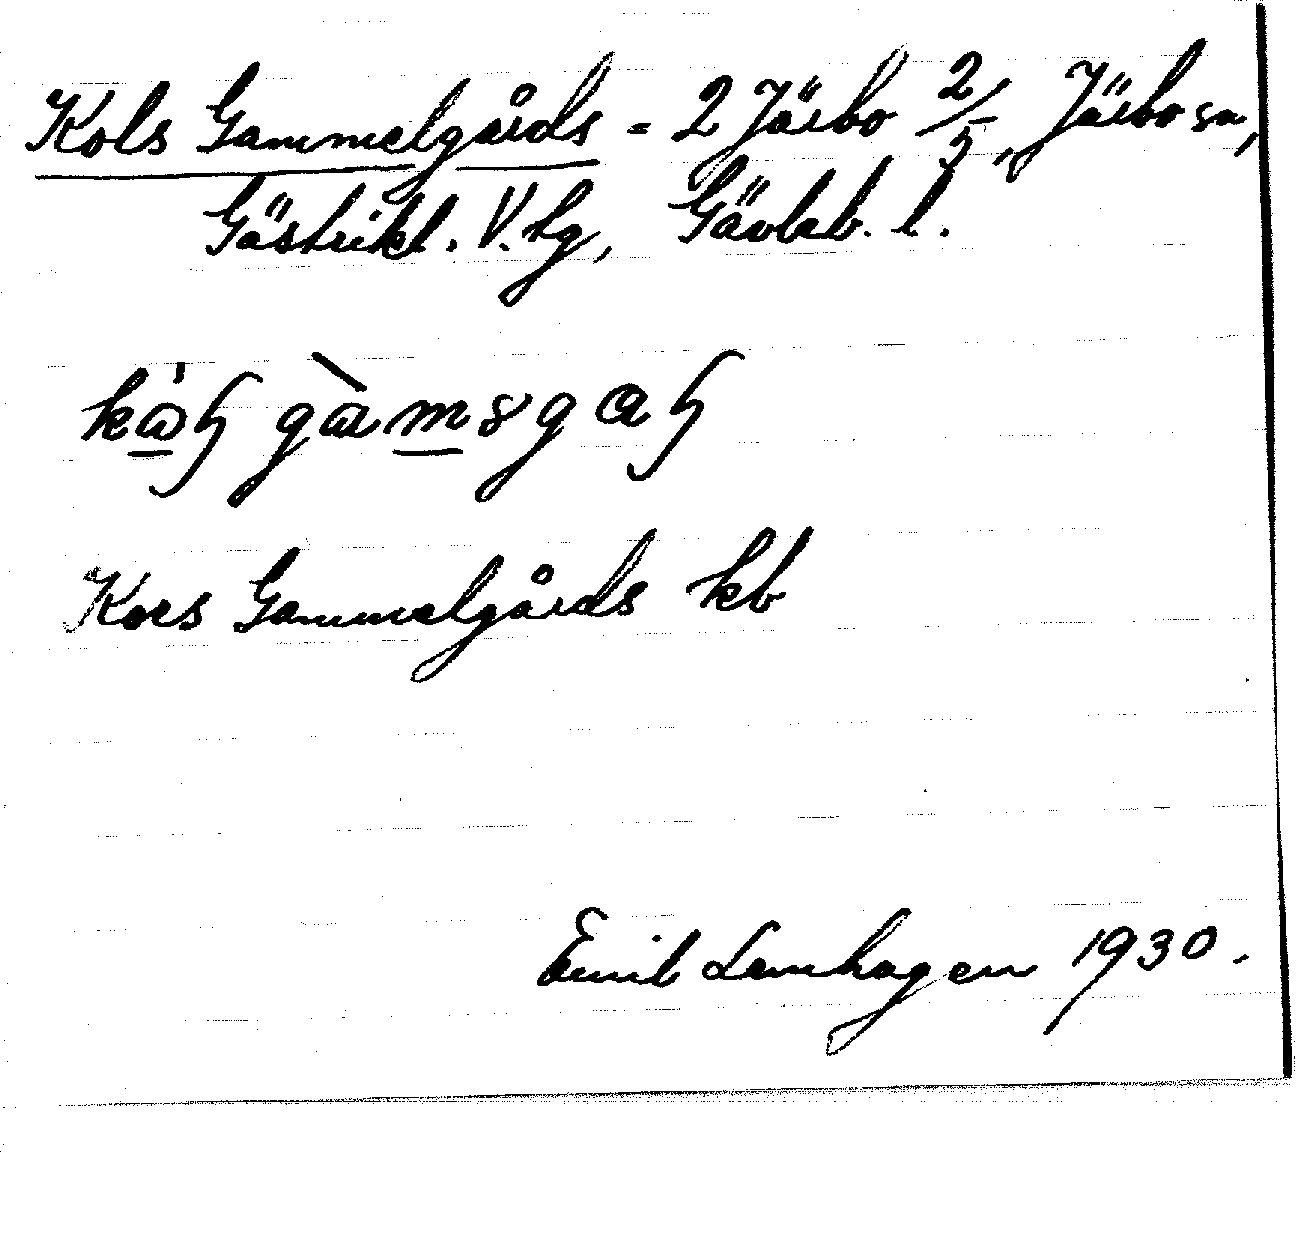 Kols Gammelgårds = 2 Järbo 2/5, Järbo sn,
Gästrikl. V. tg, Gävleb. l.
Kors Gammelgårds kb
Emil Lamhagen 1930.